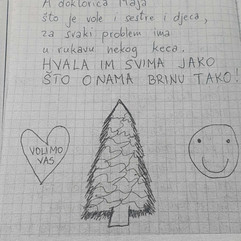 A doktorica Maja
što je vole i sestre i djeca,
za svaki problem ima
u rukavu nekog keca.
HVALA IM SVIMA JAKO
ŠTO O NAMA BRINU TAKO!
VOLIMO
VAS